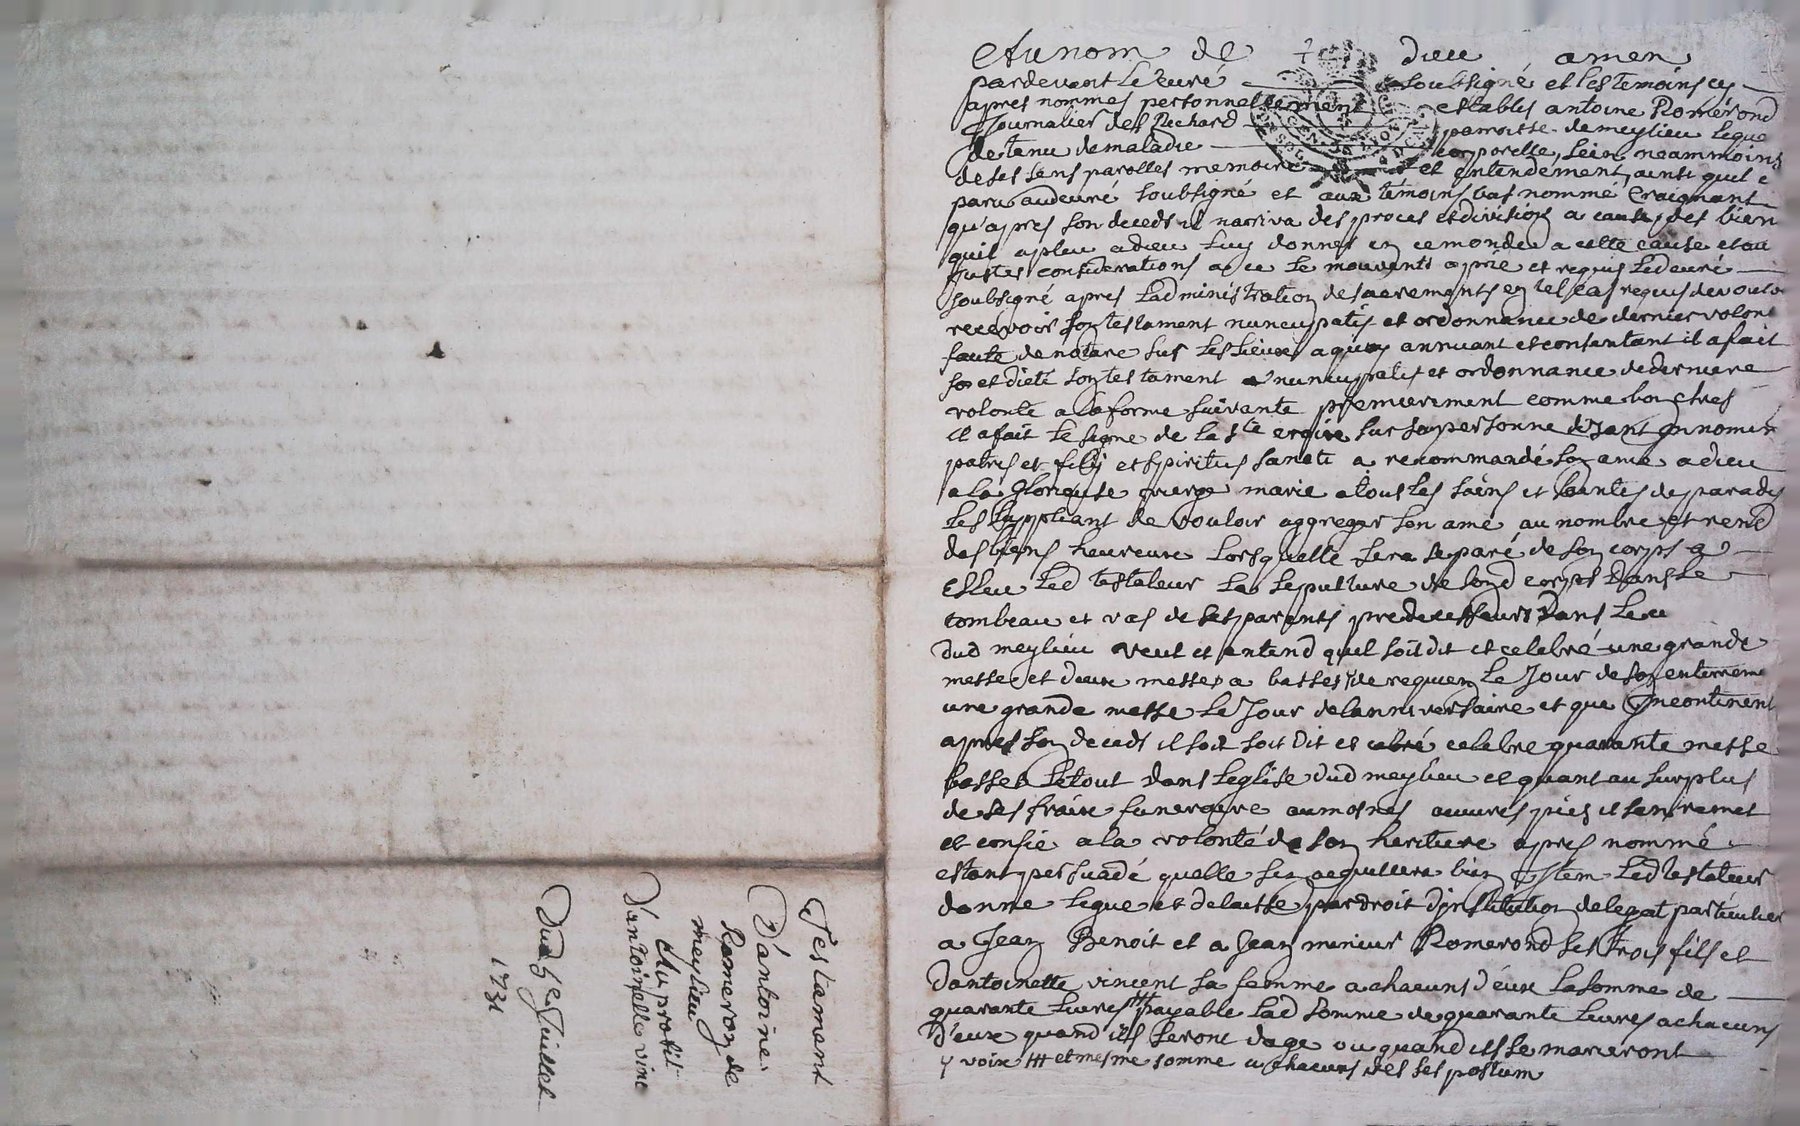 Testament
D'antoine
Romeron de
meylieu
Au profit
D'antoinette vinc
Du 5e Juillet
1731
Au nom de dieu amen
pardevant le curé soubsigné et les temoins cy
apres nommes personnellement establis antoine Romérond
Journalier des Pichard paroisse de meylieu leque
detenu de maladie corporelle, sein neammoins
de ses sens parolles memoire et entendement, ainsi quil a
paru aud curé soubsigné et aux témoins bas nommé Craignant
qu'apres son decedz il narriva des proces et division a cause des bien
quil a pleu a dieu luy donner en ce monde a cette cause et au
justes considerations a ce le mouvants a prié et requis led curé
soubsigné apres Ladministration des sacrements en tel cas requis de vouloir
recevoir son testament nuncupatif et ordonnance de dernier volont
faute de notaire sur les lieux a quoy annuant et contentant il a fait
et dicté son testament nuncupatif et ordonnance de derniere
volonté a la forme suivante premierement comme bon chres
il a fait le signe de la ste croix sur sa personne disant In nomine
patris et filij et spiritus sancti a recommandé son ame a dieu
a la glorieuse vierge marie a tous les sains et saintes de paradis
les suppliant de vouloir aggreger son ame au nombre et rend
des biens heureux lorsquelle sera separé de son corps a
Esleu led testateur la sepulture de sond corps dans le
tombeau et vas de ses parents predecesseurs dans leu
dud meylieu veut et entend quil soit dit et celebré une grande
messe et deux messes a basses de requien le Jour de son enterreme
une grande messe le Jour de lanniversaire et que Incontinent
apres son decedz il soit soit dit et celebre quarante messe
basses le tout dans leglise dud meylieu et quant au surplus
de ses fraix funeraire aumosnes œuvres pies il sen remet
et confie a la volonté de son heritiere apres nommé
estant persuadé quelle sen acquittera bien Item led testateur
donne legue et delaisse par droit d'institution de legat particulier
a Jean Benoit et a Jean merieur Romerond ses trois fils et
d'antoinette vincent sa femme a chacuns d'eux la somme de
quarante livres ttt payable lad somme de quarante livres a chacuns
d'eux quand ils seront dage ou quand ils se marieront
ttt et mesme somme a chacuns des ses postum